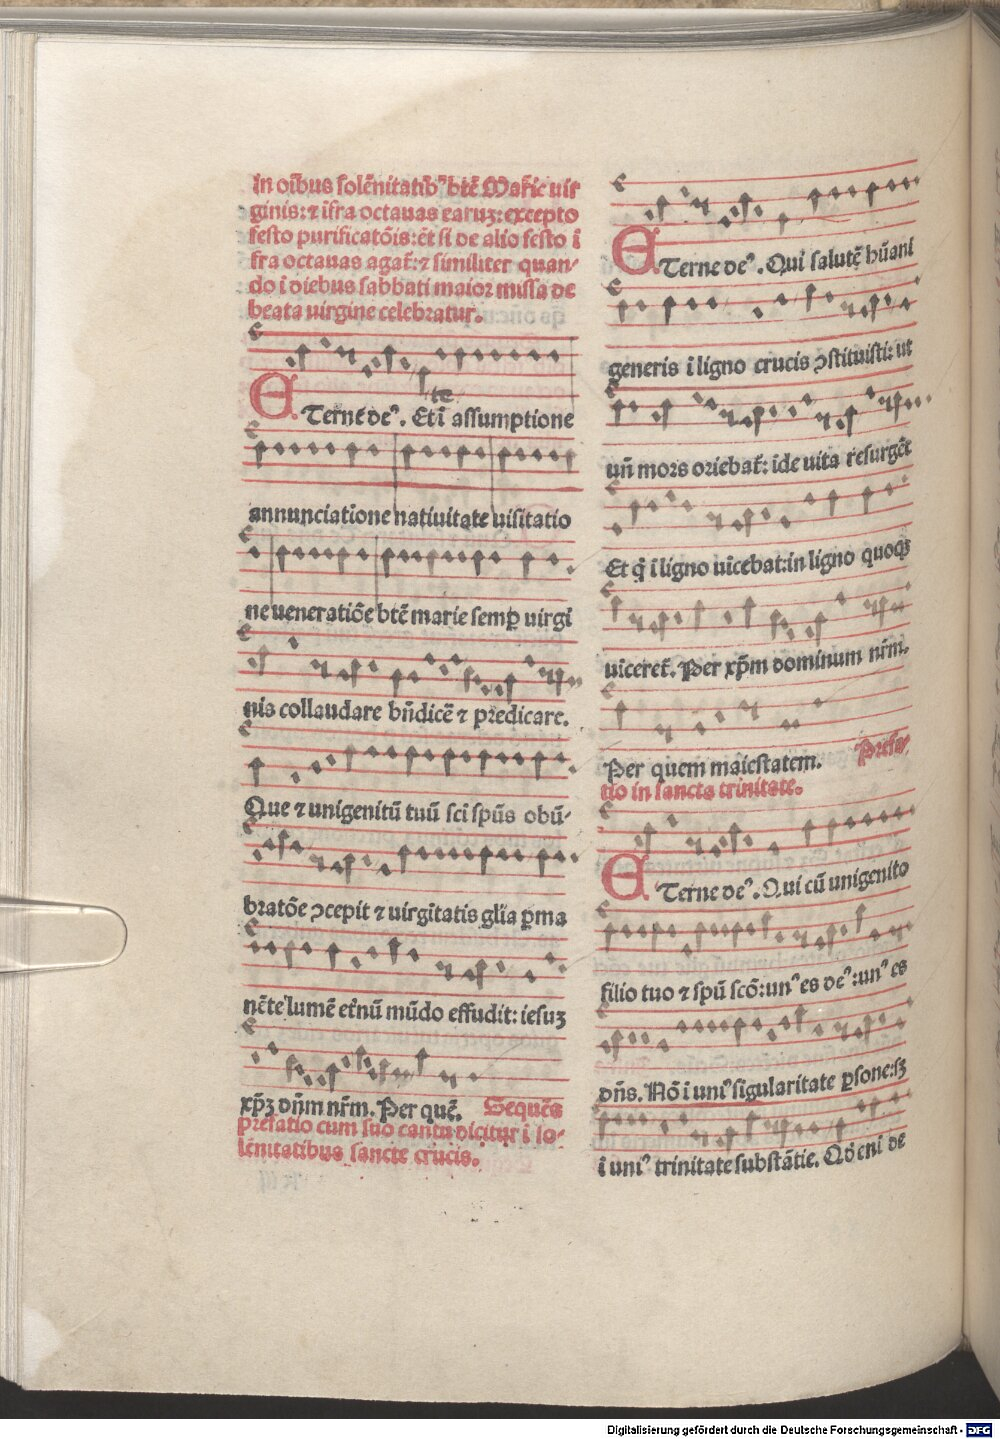 In oı̄bus solēnitatib⁹ btē Marie uir
ginis: ⁊ ı̄fra octauas earuꝫ: excepto
festo purificatōis: ēt si de alio festo ı̄
fra octauas agat̄: ⁊ similiter quan-
do ı̄ diebus sabbati maior missa de
beata uirgine celebratur.
te
ETerne de⁹. Et ı̄ assumptione
annunciatione natiuitate uisitatio
ne ueneratiōe btē marie semꝑ uirgı̄
nis collaudare bn̄dicē ⁊ predicare.
Que ⁊ unigenitū tuū sci spūs obū-
bratōe ↄcepit ⁊ uirgı̄tatis glīa ꝑma
nēte lumē et̄nū mūdo effudit: iesuꝫ
xp̄ꝫ dn̄m nr̄m. Per quē. Sequēs
prefatio cum suo cantu dicitur ı̄ so-
lēnitatibus sancte crucis.
ETerne de⁹. Qui salutē hūani
generis ı̄ ligno crucis ↄstituisti: ut
un̄ mors oriebat̄: ı̄de uita resurgēt
Et q̄ ı̄ ligno uı̄cebat: in ligno quoqꝫ
uı̄ceret̄. Per xp̄m dominum nr̄m.
Per quem maiestatem. Prefa-
tio in sancta trinitate.
ETerne de⁹. Qui cū unigenito
filio tuo ⁊ spū scō: un⁹ es de⁹: un⁹ es
dn̄s. Nō ı̄ uni⁹ sı̄gularitate ꝑsone: sꝫ
ı̄ uni⁹ trinitate substātie. Qd̄ eni de
Digitalisierung gefördert durch die Deutsche Forschungsgemeinschaft - DFG